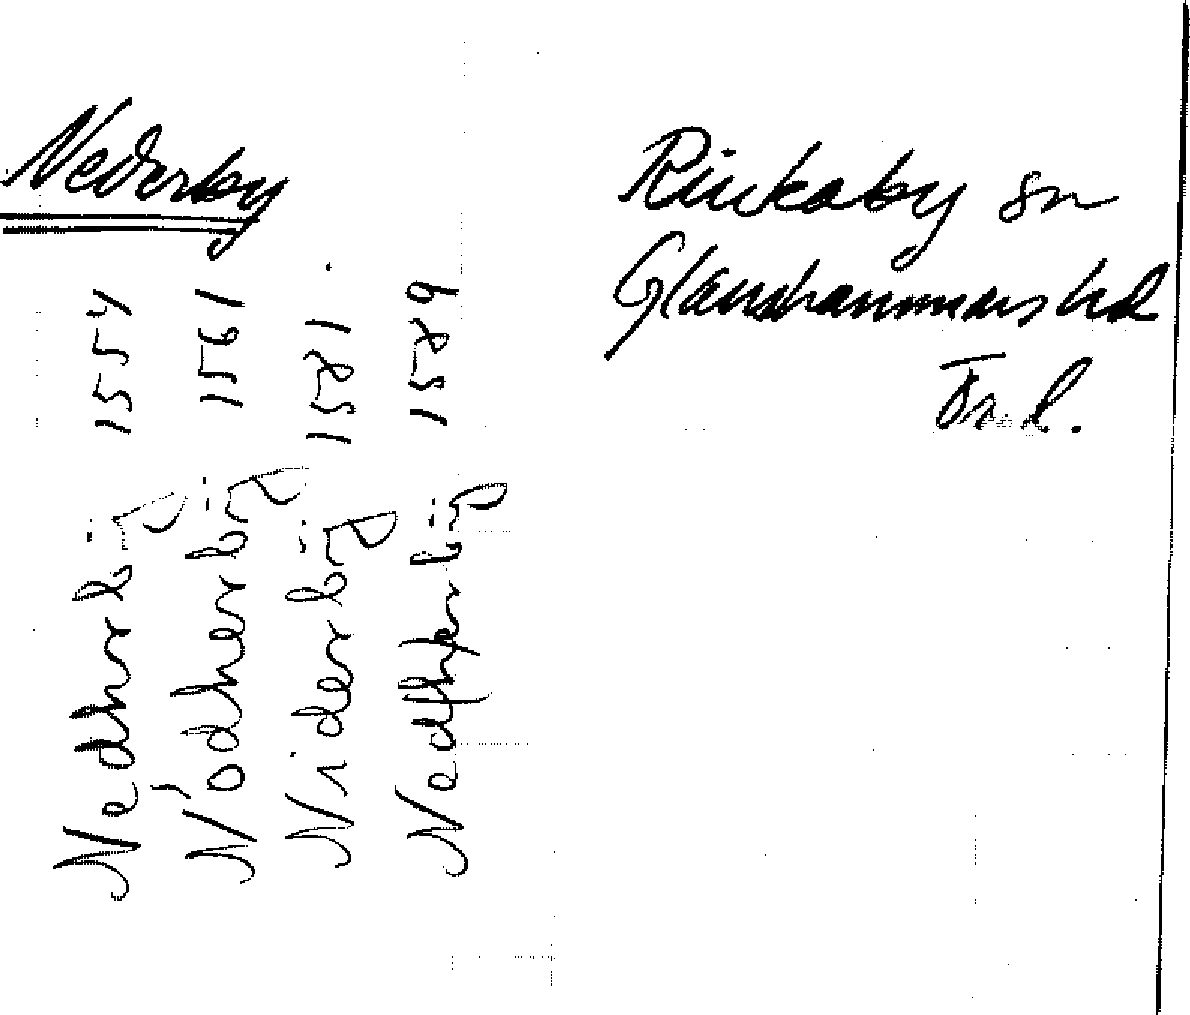 Nederby
Rinkaby sn
Glanshammars hd
Ör. l.
Nedhrbÿ 1554
Nödherbÿ 1561
Niderbÿ 1581
Nedherbÿ 1589